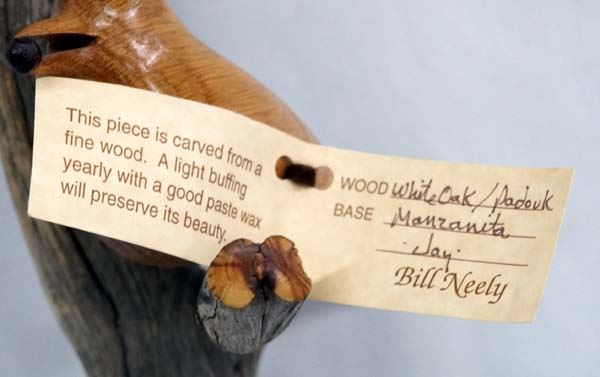 This piece is carved from a
fine wood. A light buffing
yearly with a good paste wax
will preserve its beauty.
WOOD White Oak / Padouk
BASE Manzanita
Jay
Bill Neely